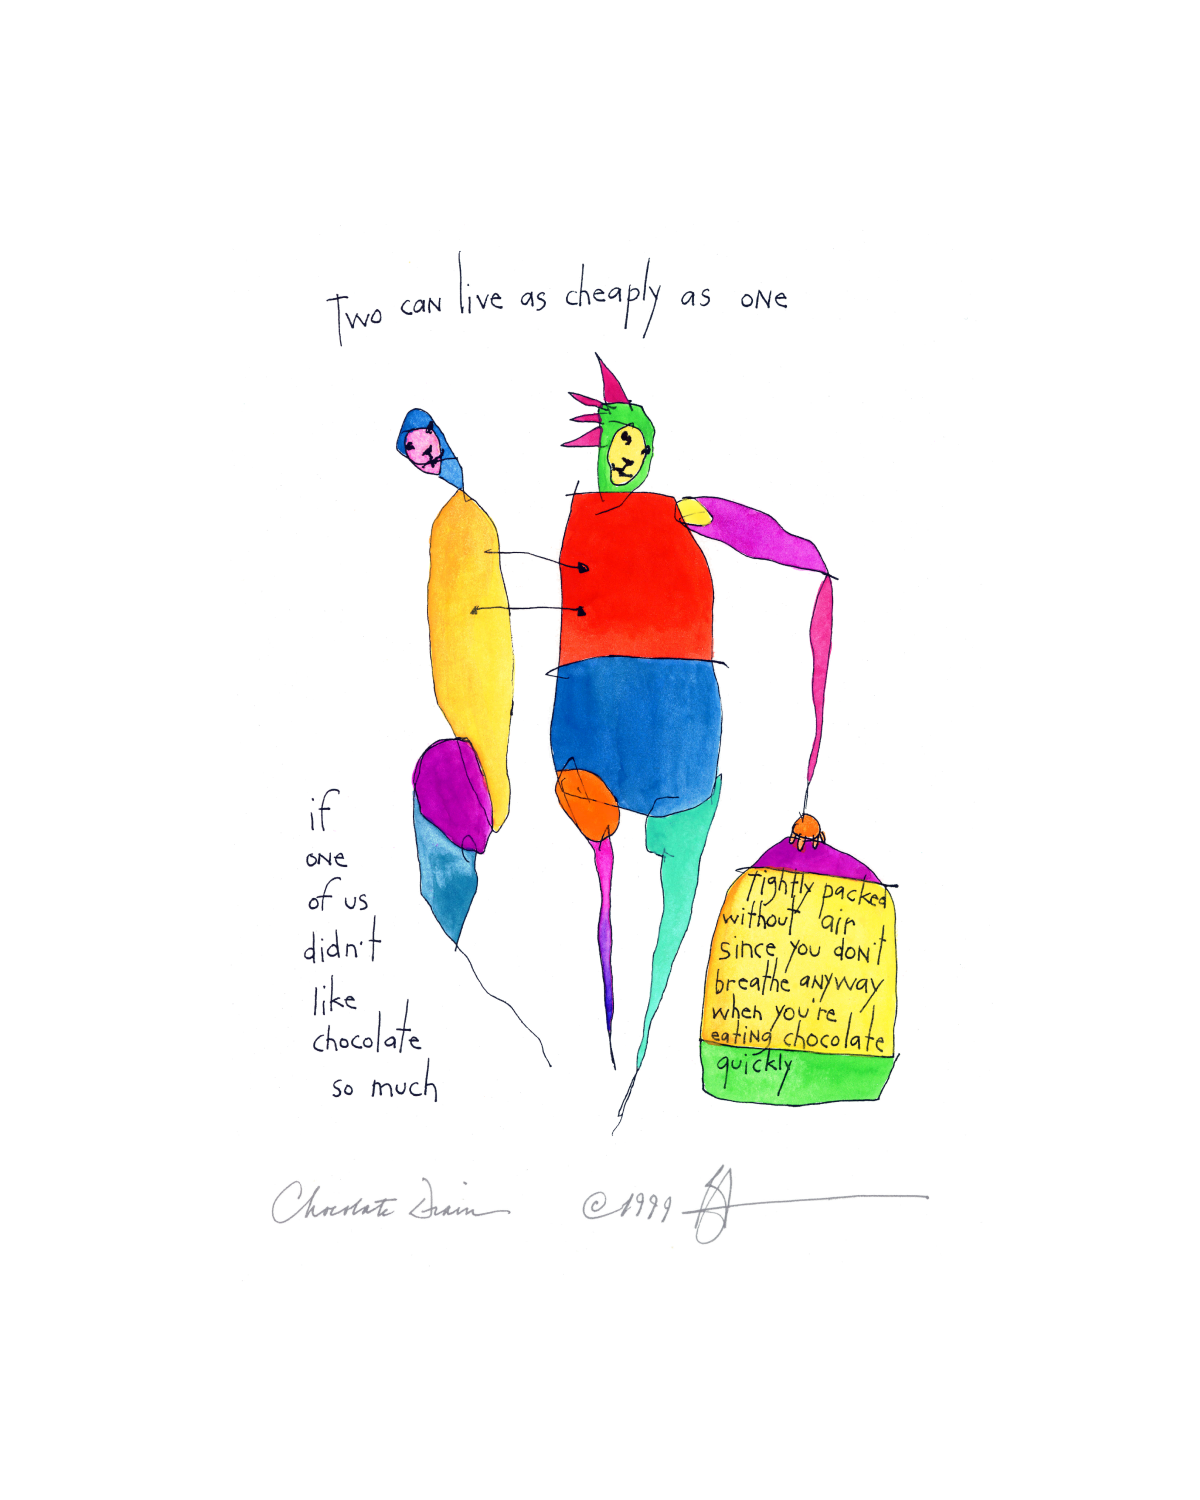 Two can live as cheaply as one
if
one
of us
didn't
like
chocolate
so much
Tightly packed
without air
since you don't
breathe anyway
when you're
eating chocolate
quickly
Chocolate Drain
©1999